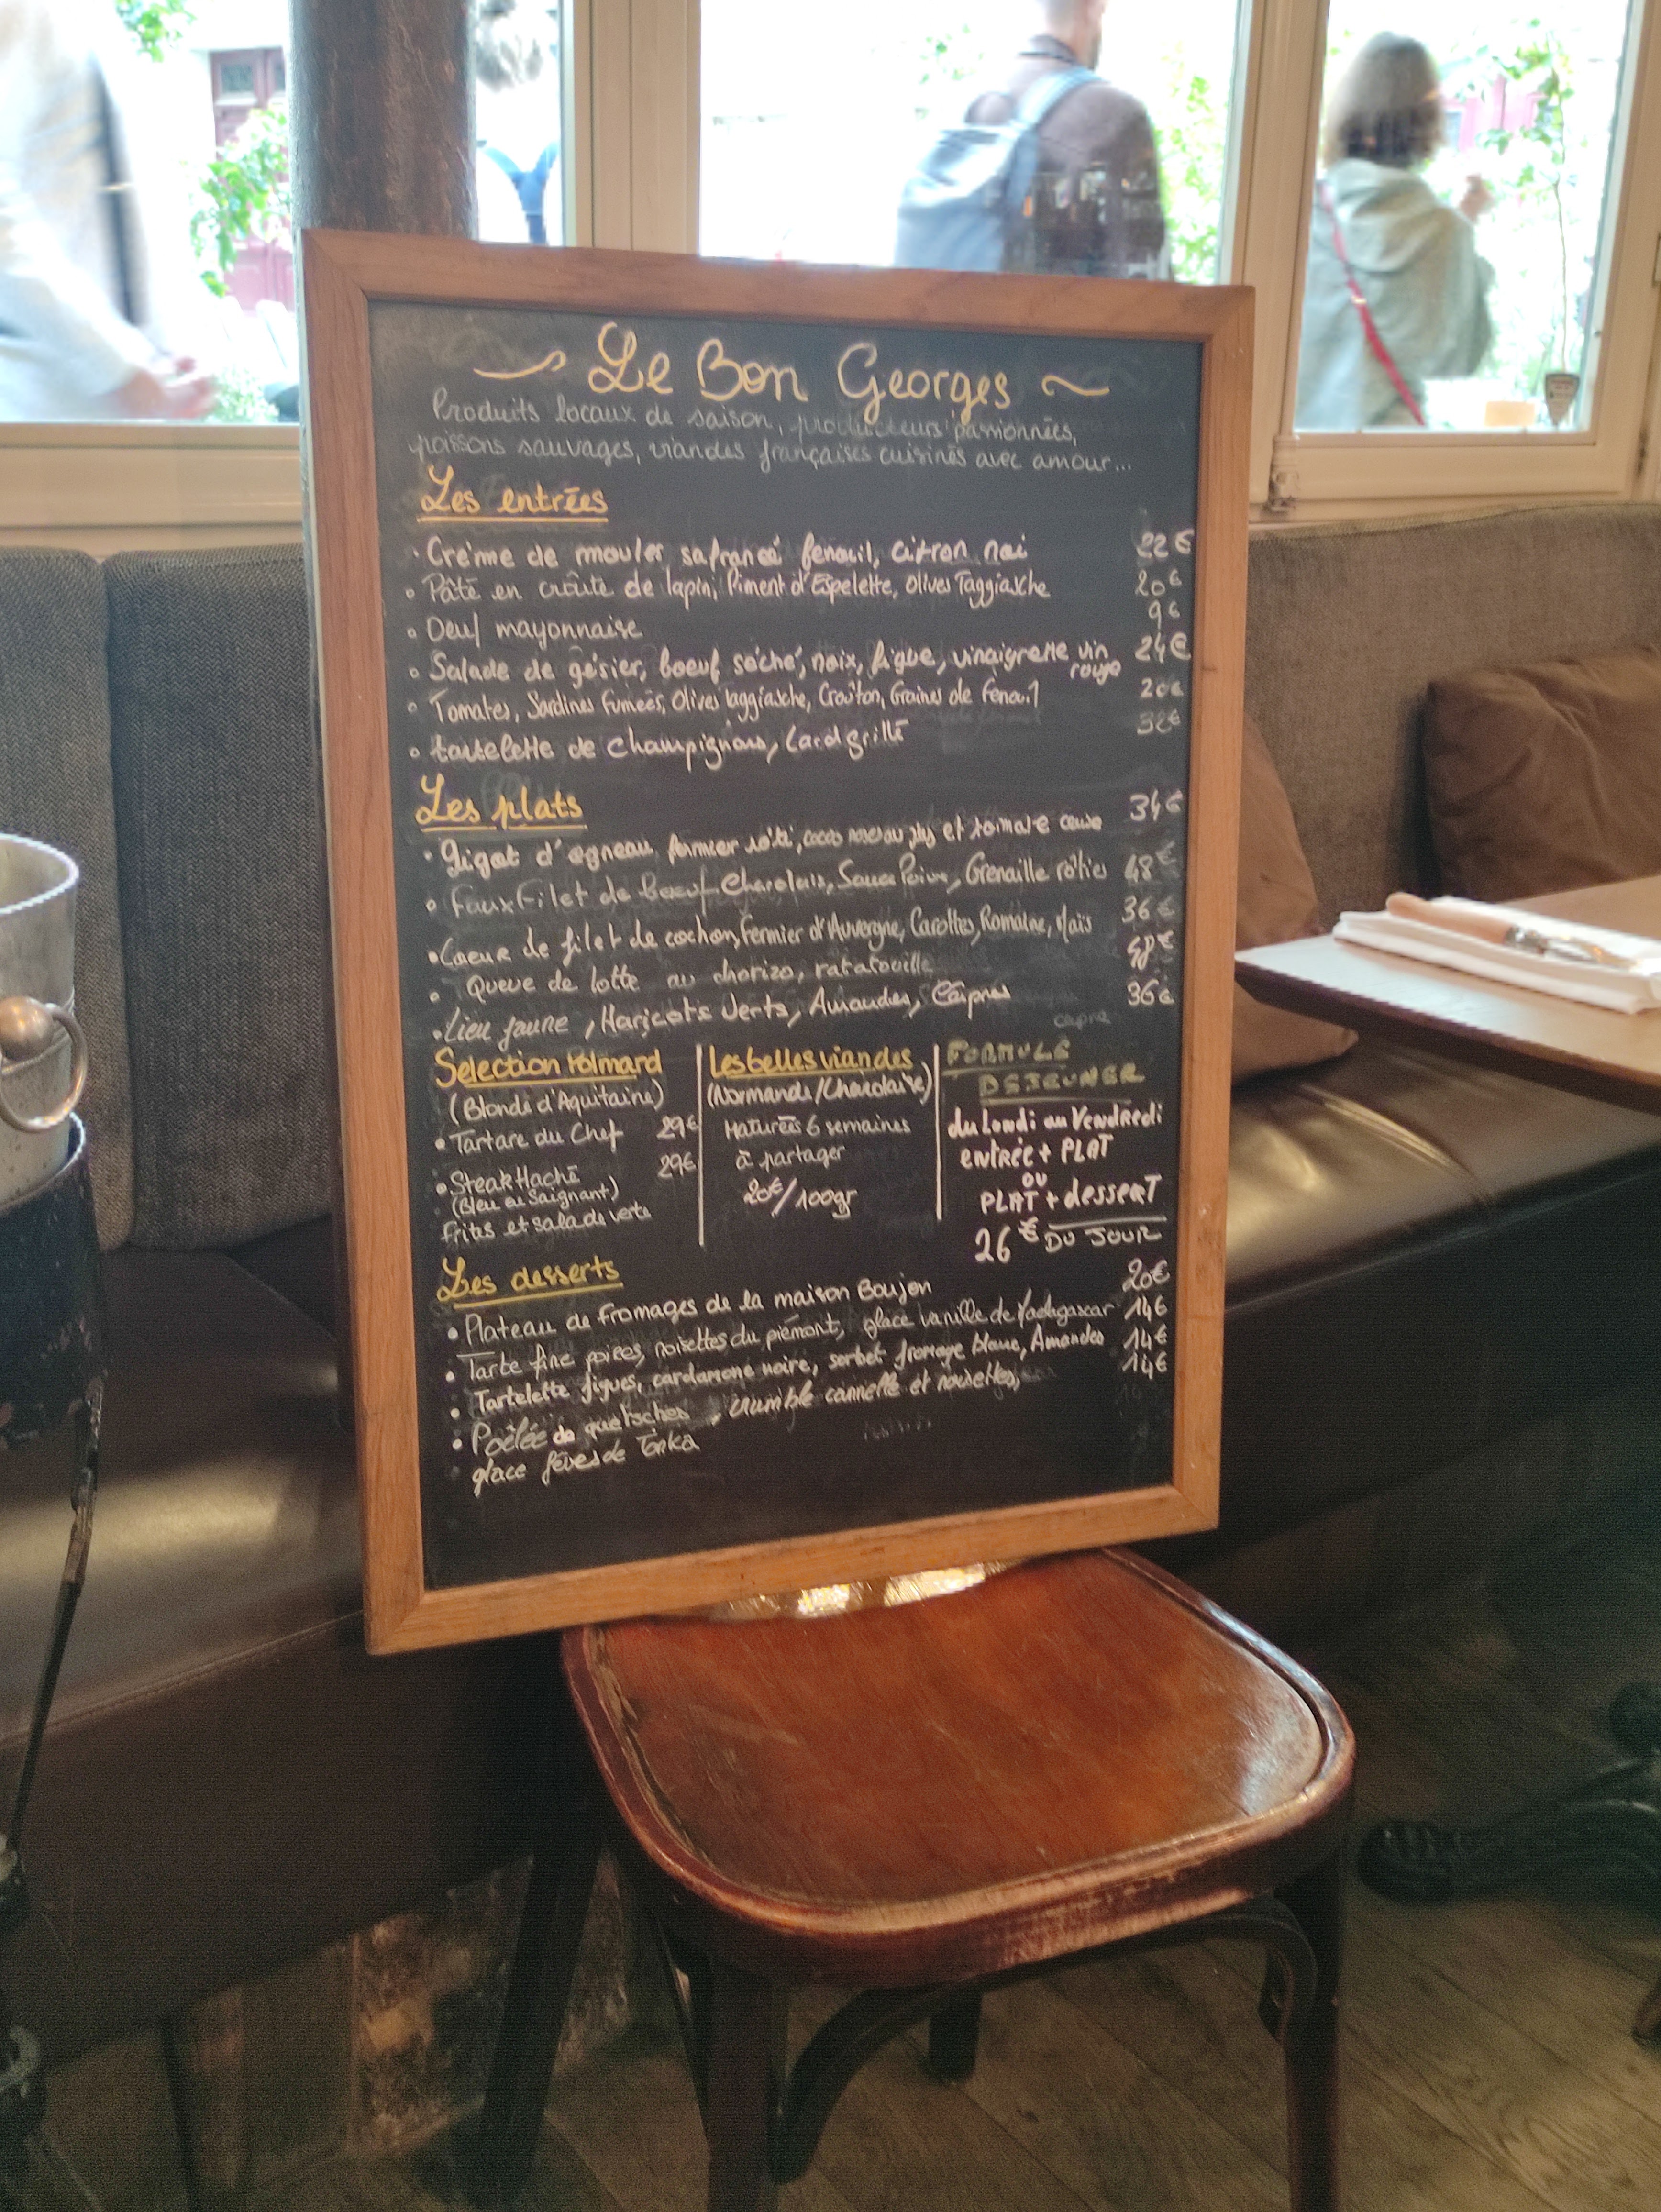 Le Bon Georges
Produits locaux de saison, producteurs passionnés,
poissons sauvages, viandes françaises cuisinés avec amour...
Les entrées
• Crème de moules safranée fenouil, citron noi 22€
• Pâté en croûte de lapin, Piment d'Espelette, Olives Taggiasche 20€
• Oeuf mayonnaise 9€
• Salade de gésier, boeuf séché, noix, figue, vinaigrette vin rouge 24€
• Tomates, Sardines Fumées, Olives taggiasche, Croûton, Graines de Fenouil 20€
• tartelette de champignons, Lard grillé 32€
Les plats
• Gigot d'agneau fermier rôti, cocos au jus et tomate 34€
• Faux Filet de boeuf Charolais, Sauce Poivre, Grenaille rôties 48€
• Coeur de filet de cochon, Fermier d'Auvergne, Carottes, Romaine, Maïs 36€
• Queue de lotte au chorizo, ratatouille 48€
• Lieu jaune, Haricots Verts, Amandes, Câpres 36€
Selection Polmard
(Blonde d'Aquitaine)
• Tartare du Chef 29€
• Steak Haché 29€
(Bleu ou Saignant)
frites et salade verte
Les belles viandes
(Normande/Charolaise)
Maturées 6 semaines
à partager
20€/100gr
FORMULE
DEJEUNER
du Lundi au Vendredi
entrée + PLAT
ou
PLAT + dessert
26€ DU JOUR
Les desserts
• Plateau de fromages de la maison Boujon 20€
• Tarte fine poires, noisettes du piémont, glace vanille de Madagascar 14€
• Tartelette figues, cardamone noire, sorbet fromage blanc, Amandes 14€
• Poêlée de quetsches, crumble cannelle et noisettes, 14€
glace fèves de Tonka